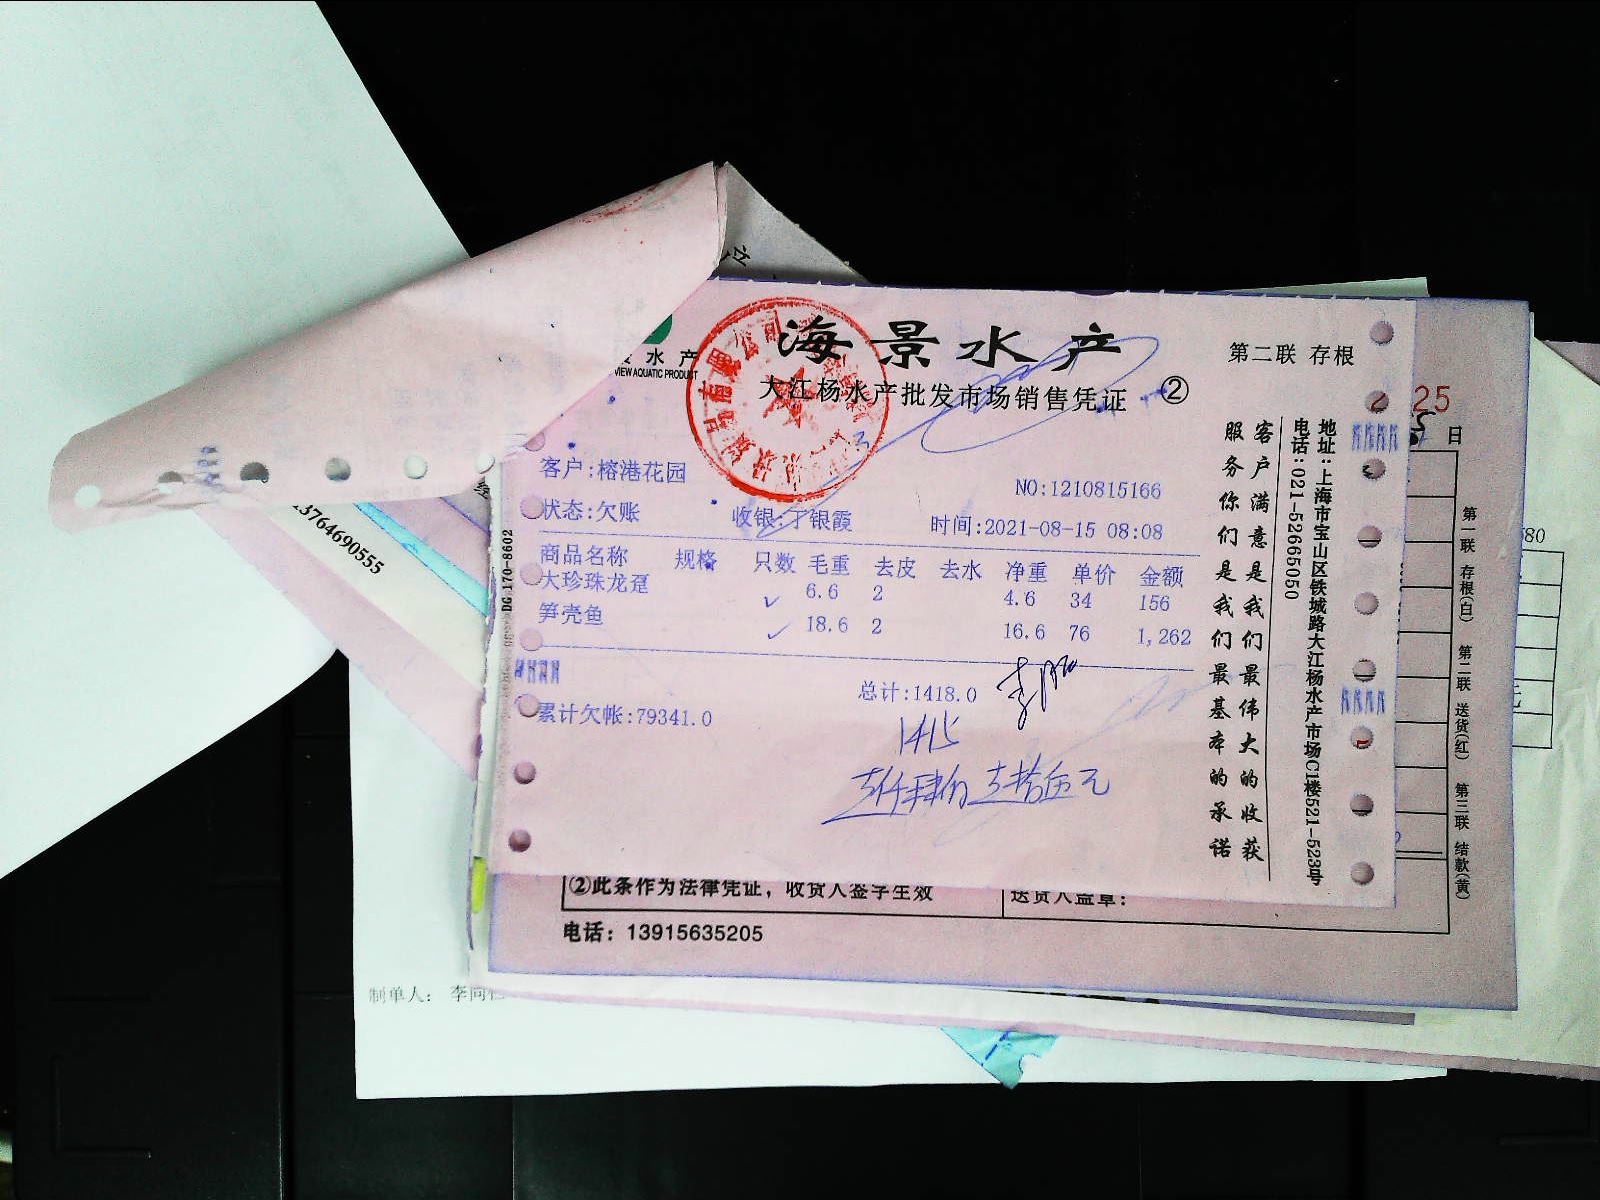 水产
VIEW AQUATIC PRODUCT
海景水产
大江杨水产批发市场销售凭证 ②
第二联 存根
客户:榕港花园
NO:1210815166
状态:欠账
收银:丁银霞
时间:2021-08-15 08:08
商品名称 规格 只数 毛重 去皮 去水 净重 单价 金额
大珍珠龙趸 6.6 2 4.6 34 156
笋壳鱼 18.6 2 16.6 76 1,262
总计:1418.0
累计欠帐:79341.0
1415
壹仟肆佰壹拾伍元
客户满意是我们最伟大的收获
服务你们是我们最基本的承诺
地址:上海市宝山区铁城路大江杨水产市场C1楼521-523号
电话:021-52665050
DG 170-8602
13764690555
25
日
第一联 存根(白) 第二联 送货(红) 第三联 结款(黄)
80
元
②此条作为法律凭证，收货人签字生效
送货人盖章：
电话：13915635205
制单人：